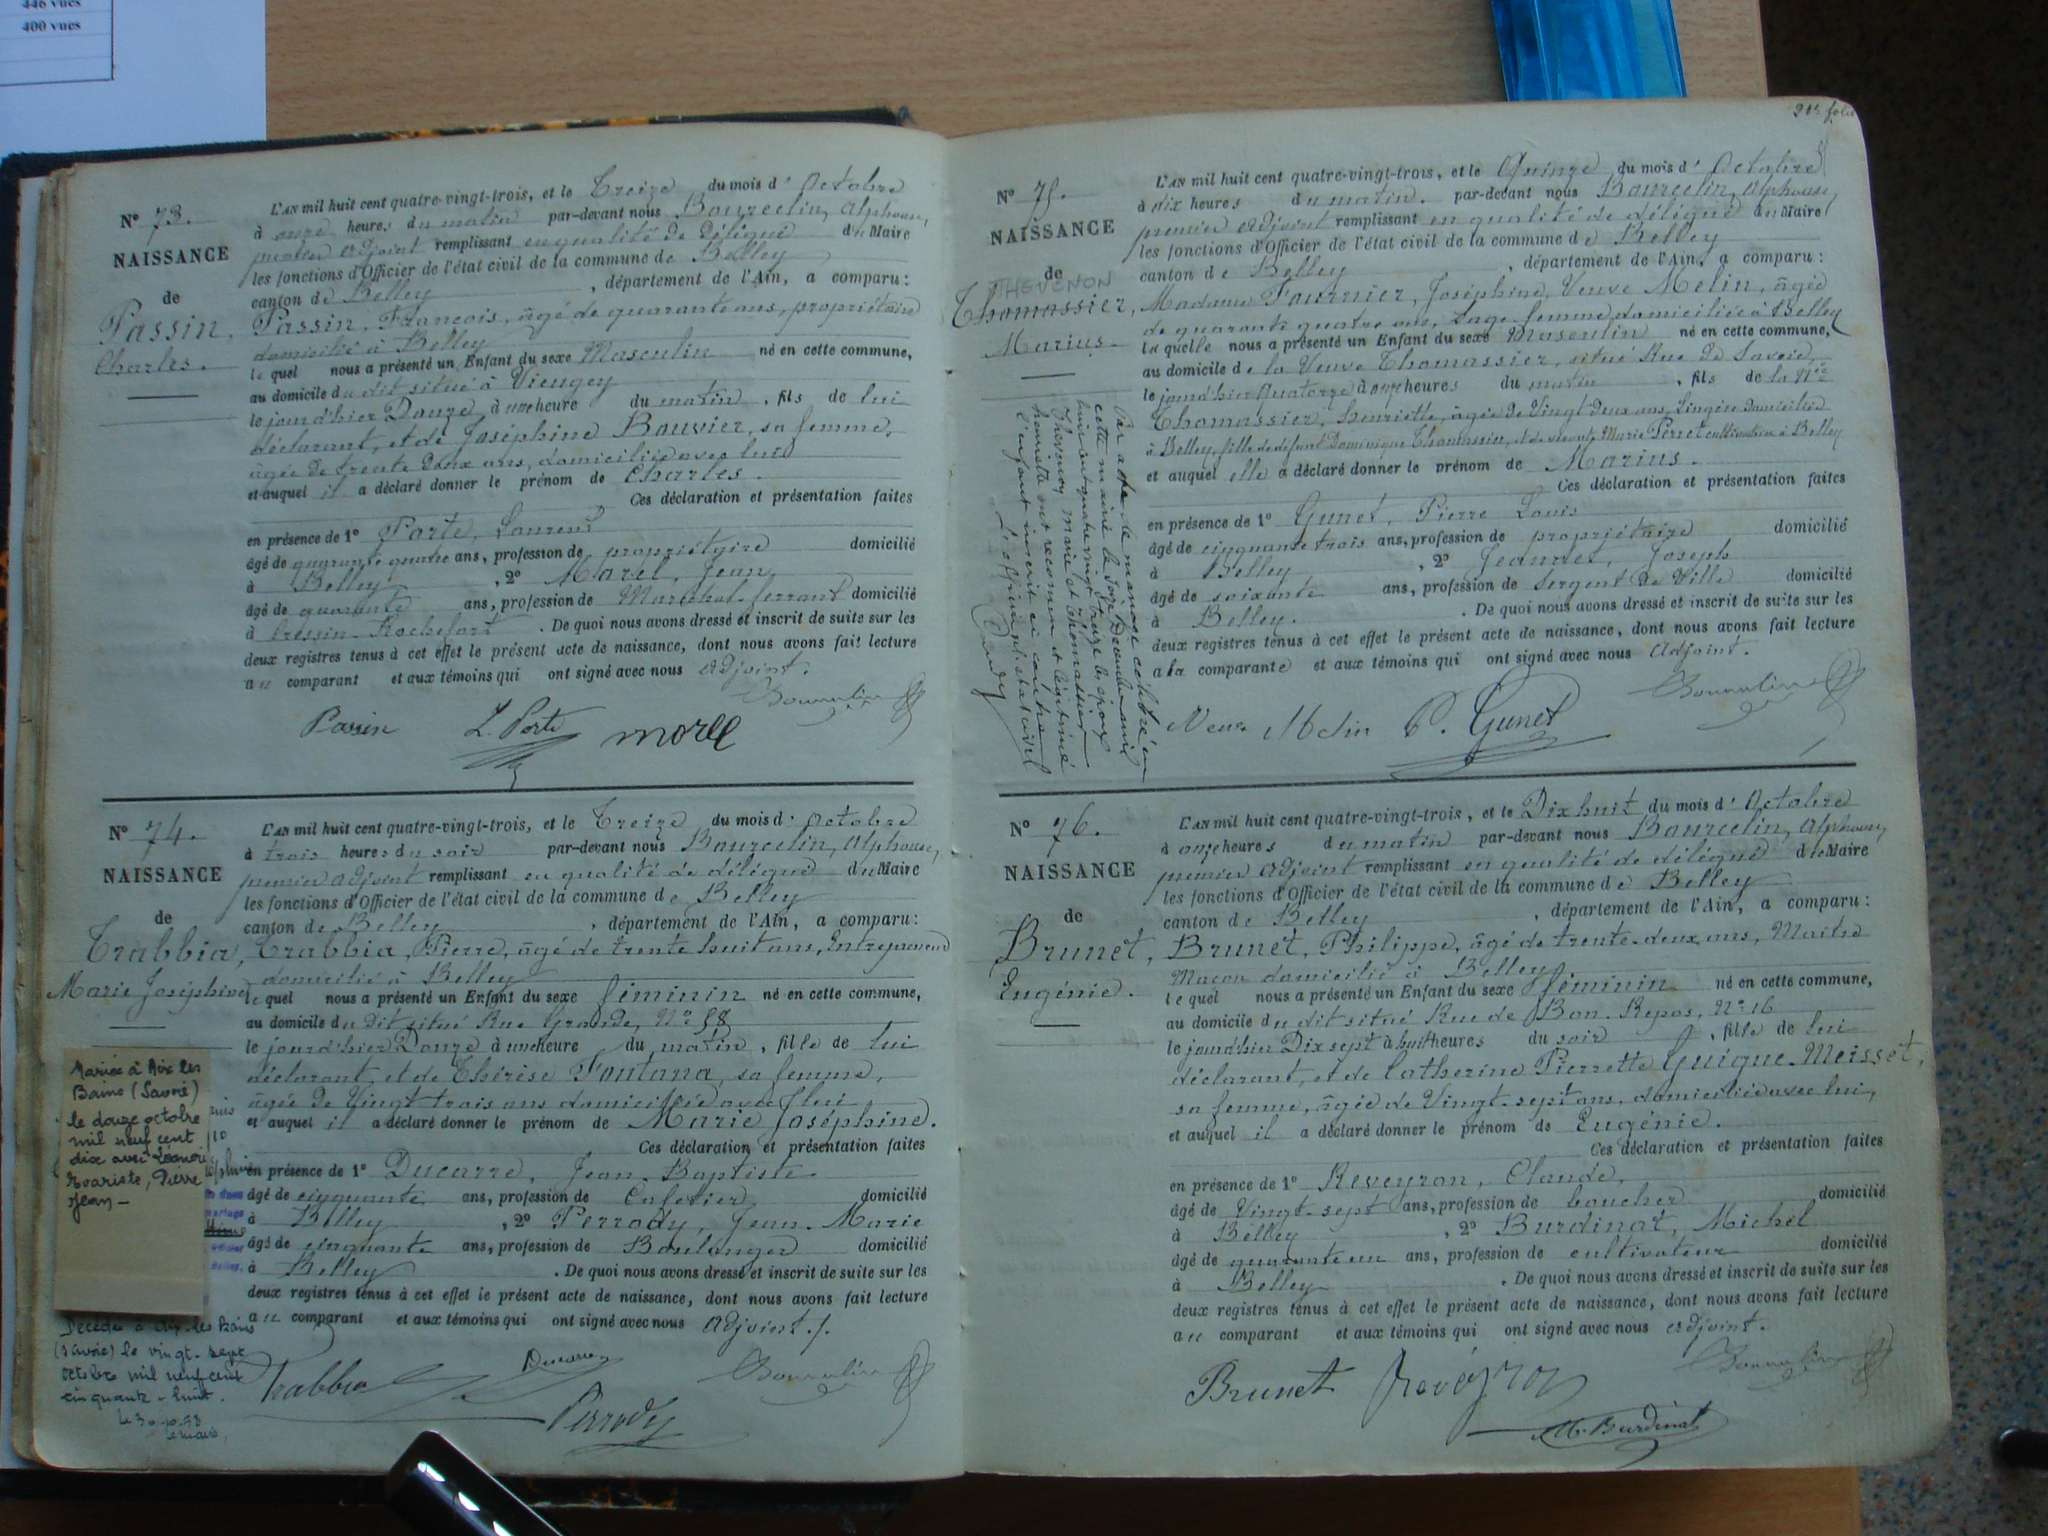 446 vues
400 vues
N° 73.
NAISSANCE
de
Passin,
Charles.
L'AN mil huit cent quatre-vingt-trois, et le Treize du mois d' Octobre
à onze heures du matin par-devant nous Bourcelin, Alphonse,
premier adjoint remplissant en qualité de délégué du Maire
les fonctions d'Officier de l'état civil de la commune de Belley
canton de Belley , département de l'Ain, a comparu :
Passin, François, âgé de quarante ans, propriétaire
domicilié à Belley
lequel nous a présenté un Enfant du sexe Masculin né en cette commune,
au domicile du dit situé à Vieugey
le jour d'hier Douze, à une heure du matin, fils de lui
déclarant, et de Joséphine Bouvier, sa femme,
âgée de trente deux ans, domiciliée avec lui
et auquel il a déclaré donner le prénom de Charles.
Ces déclaration et présentation faites
en présence de 1° Porte, Laurent
âgé de quarante quatre ans, profession de propriétaire domicilié
à Belley , 2° Morel, Jean
âgé de quarante ans, profession de Maréchal-ferrant domicilié
à Cressin-Rochefort . De quoi nous avons dressé et inscrit de suite sur les
deux registres tenus à cet effet le présent acte de naissance, dont nous avons fait lecture
au comparant et aux témoins qui ont signé avec nous adjoint.
Passin L. Porte morel Bourcelin
N° 74.
NAISSANCE
de
Trabbia,
Marie Joséphine
L'AN mil huit cent quatre-vingt-trois, et le Treize du mois d' Octobre
à trois heures du soir par-devant nous Bourcelin, Alphonse,
premier adjoint remplissant en qualité de délégué du Maire
les fonctions d'Officier de l'état civil de la commune de Belley
canton de Belley , département de l'Ain, a comparu :
Trabbia, Pierre, âgé de trente huit ans, Entrepreneur
domicilié à Belley
lequel nous a présenté un Enfant du sexe féminin né en cette commune,
au domicile du dit situé Rue Grande, N° 58
le jour d'hier Douze à une heure du matin, fille de lui
déclarant, et de Thérèse Fontana, sa femme,
âgée de Vingt trois ans domiciliée avec lui
et auquel il a déclaré donner le prénom de Marie Joséphine.
Ces déclaration et présentation faites
en présence de 1° Ducarre, Jean-Baptiste
âgé de cinquante ans, profession de Cafetier domicilié
à Belley , 2° Perrody, Jean-Marie
âgé de cinquante ans, profession de Boulanger domicilié
à Belley . De quoi nous avons dressé et inscrit de suite sur les
deux registres tenus à cet effet le présent acte de naissance, dont nous avons fait lecture
au comparant et aux témoins qui ont signé avec nous adjoint./.
Trabbia Ducarre Perrody Bourcelin
Mariée à Aix les
Bains (Savoie)
le douze octobre
mil neuf cent
dix avec Léonore
Evariste, Pierre
Jean –
Décédée à Aix-les-Bains
(Savoie) le vingt-sept
octobre mil neuf cent
cinquante-huit.
le 30-10-58
le maire,
215 folio
N° 75.
NAISSANCE
de
THEVENON
Thomassier,
Marius.
L'AN mil huit cent quatre-vingt-trois, et le Quinze du mois d' Octobre
à dix heures du matin. par-devant nous Bourcelin, Alphonse,
premier adjoint remplissant en qualité de délégué du Maire
les fonctions d'Officier de l'état civil de la commune de Belley
canton de Belley , département de l'Ain, a comparu :
Madame Fournier, Joséphine, Veuve Melin, âgée
de quarante quatre ans, sage femme domiciliée à Belley
laquelle nous a présenté un Enfant du sexe Masculin né en cette commune,
au domicile de la Veuve Thomassier, situé Rue de Savoie,
le jour d'hier Quatorze à onze heures du matin , fils de la Née
Thomassier, henriette, âgée de Vingt Deux ans, Lingère domiciliée
à Belley, fille de défunt Dominique Thomassier, et de vivante Marie Perret cultivatrice à Belley
et auquel elle a déclaré donner le prénom de Marius.
Ces déclaration et présentation faites
en présence de 1° Gunet, Pierre Louis
âgé de cinquante trois ans, profession de propriétaire domicilié
à Belley , 2° Jeannet, Joseph
âgé de soixante ans, profession de Sergent de Ville domicilié
à Belley. . De quoi nous avons dressé et inscrit de suite sur les
deux registres tenus à cet effet le présent acte de naissance, dont nous avons fait lecture
à la comparante et aux témoins qui ont signé avec nous adjoint.
Veuve Melin P. Gunet Bourcelin
Par acte de mariage célébré en
cette mairie le Décembre mil
huit cent quatre vingt treize les époux
Thevenon Marie et Thomassier
henriette ont reconnu et légitimé
l'enfant inscrit ci contre
L'officier de l'état civil
N° 76.
NAISSANCE
de
Brunet,
Eugénie.
L'AN mil huit cent quatre-vingt-trois, et le Dix huit du mois d' Octobre
à onze heures du matin par-devant nous Bourcelin, Alphonse,
premier adjoint remplissant en qualité de délégué du Maire
les fonctions d'Officier de l'état civil de la commune de Belley
canton de Belley , département de l'Ain, a comparu :
Brunet, Philippe, âgé de trente-deux ans, Maître
Maçon domicilié à Belley
lequel nous a présenté un Enfant du sexe féminin né en cette commune,
au domicile du dit situé Rue de Bon-Repos, N° 16
le jour d'hier Dix sept à huit heures du soir , fille de lui
déclarant, et de Catherine Pierrette Guigue-Meisset,
sa femme, âgée de Vingt-sept ans, domiciliée avec lui,
et auquel il a déclaré donner le prénom de Eugénie.
Ces déclaration et présentation faites
en présence de 1° Reveyron, Claude,
âgé de Vingt-sept ans, profession de boucher domicilié
à Belley , 2° Burdinat, Michel
âgé de quarante un ans, profession de cultivateur domicilié
à Belley . De quoi nous avons dressé et inscrit de suite sur les
deux registres tenus à cet effet le présent acte de naissance, dont nous avons fait lecture
au comparant et aux témoins qui ont signé avec nous adjoint.
Brunet Reveyron M. Burdinat Bourcelin